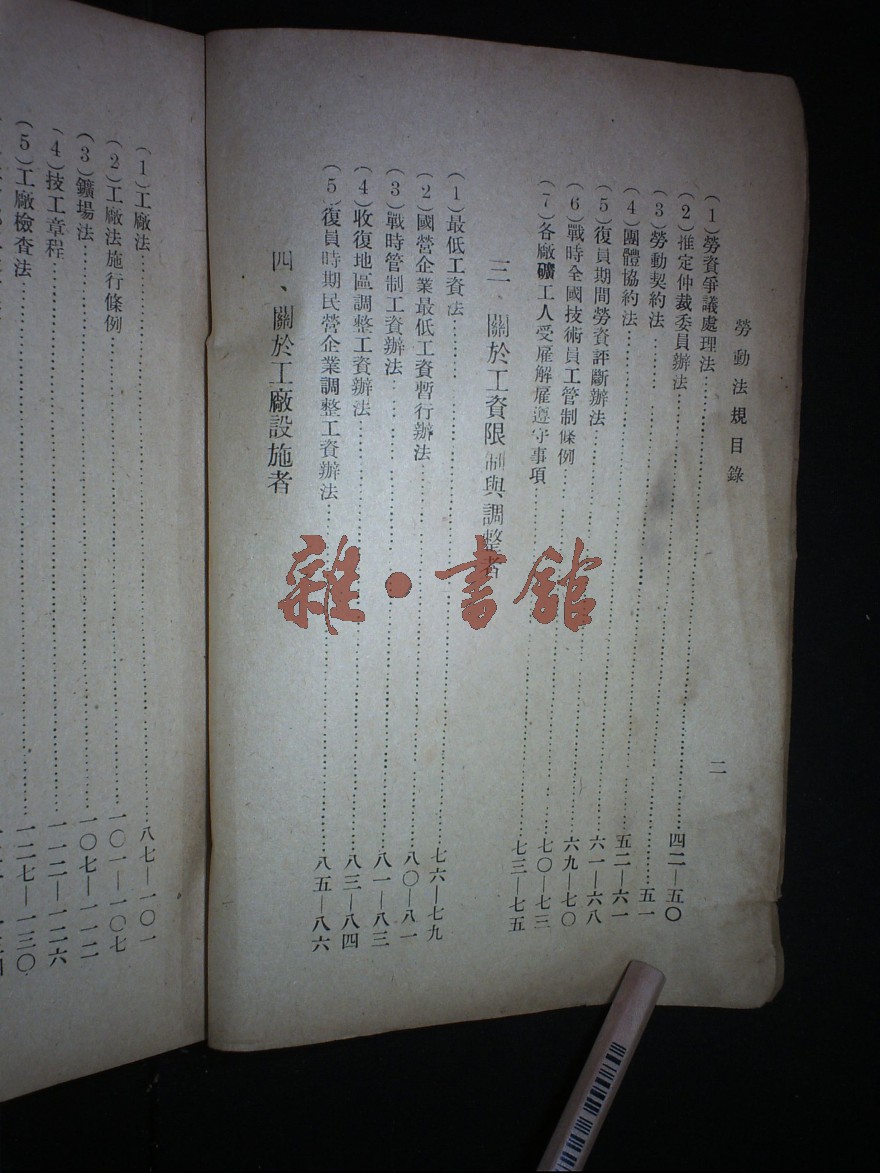 勞動法規目錄 二
(1)勞資爭議處理法……四二—五〇
(2)推定仲裁委員辦法……五一
(3)勞動契約法……五二—六一
(4)團體協約法……六一—六八
(5)復員期間勞資評斷辦法……六九—七〇
(6)戰時全國技術員工管制條例……七〇—七三
(7)各廠礦工人受雇解雇遵守事項……七三—七五
三、關於工資限制與調整者
(1)最低工資法……七六—七九
(2)國營企業最低工資暫行辦法……八〇—八一
(3)戰時管制工資辦法……八一—八三
(4)收復地區調整工資辦法……八三—八四
(5)復員時期民營企業調整工資辦法……八五—八六
四、關於工廠設施者
(1)工廠法……八七—一〇一
(2)工廠法施行條例……一〇一—一〇七
(3)鑛場法……一〇七—一一二
(4)技工章程……一一二—一二六
(5)工廠檢查法……一二七—一三〇
雜·書館